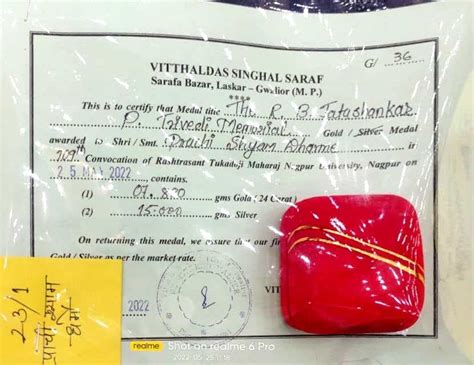 VITTHALDAS SINGHAL SARAF
G/ 36
Sarafa Bazar, Laskar – Gwalior (M. P.)
****
This is to certify that Medal title The R. B. Jatashankar
P. Trivedi Memorial Gold / Silver Medal
awarded to Shri / Smt. Prachi Shyam Dharme ir
109th Convocation of Rashtrasant Tukadoji Maharaj Nagpur University, Nagpur on
25 MAY 2022 contains.
(1) 07.820 gms Gola (24 Carat)
(2) 15.000 gms Silver
On returning this medal, we assure that our fir
Gold / Silver as per the market rate.
VITTHA
2022
23/1
realme Shot on realme 6 Pro
2022-05-25 11:18